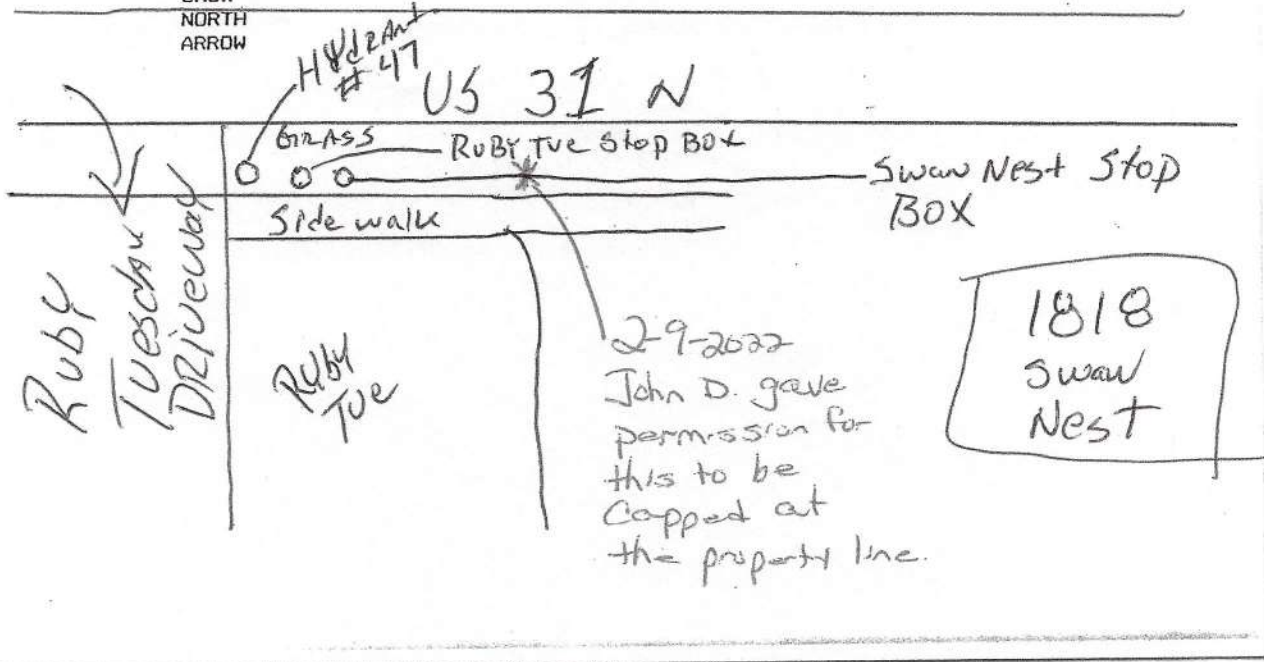 NORTH
ARROW
HYdRAnt
# 47
US 31 N
GRASS
RUBY TUE Stop BOX
Swan Nest Stop
BOX
Side walk
Ruby
Tuesday
DRiveway
RUBY
TUE
2-9-2022
John D. gave
permission for
this to be
Capped at
the property line.
1818
Swan
Nest